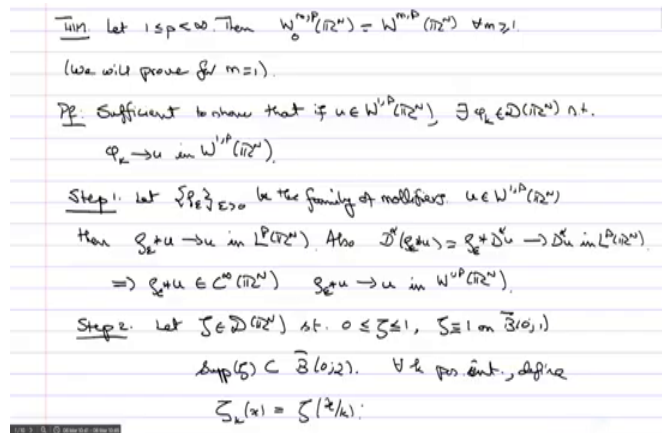 Thm. Let 1 ≤ p < ∞. Then W₀^{m,p}(ℝᴺ) = W^{m,p}(ℝᴺ) ∀ m ≥ 1.
(We will prove for m=1).
Pf: Sufficient to show that if u ∈ W^{1,p}(ℝᴺ), ∃ φₖ ∈ 𝒟(ℝᴺ) s.t.
φₖ → u in W^{1,p}(ℝᴺ).
Step 1. Let {ρ_ε}_{ε>0} be the family of mollifiers. u ∈ W^{1,p}(ℝᴺ)
then ρ_ε*u → u in L^p(ℝᴺ). Also D^α(ρ_ε*u) = ρ_ε*D^α u → D^α u in L^p(ℝᴺ).
⇒ ρ_ε*u ∈ C^∞(ℝᴺ) ρ_ε*u → u in W^{1,p}(ℝᴺ).
Step 2. Let ζ ∈ 𝒟(ℝᴺ) s.t. 0 ≤ ζ ≤ 1, ζ ≡ 1 on B̄(0;1)
supp(ζ) ⊂ B̄(0;2). ∀ k pos. int., define
ζₖ(x) = ζ(x/k).